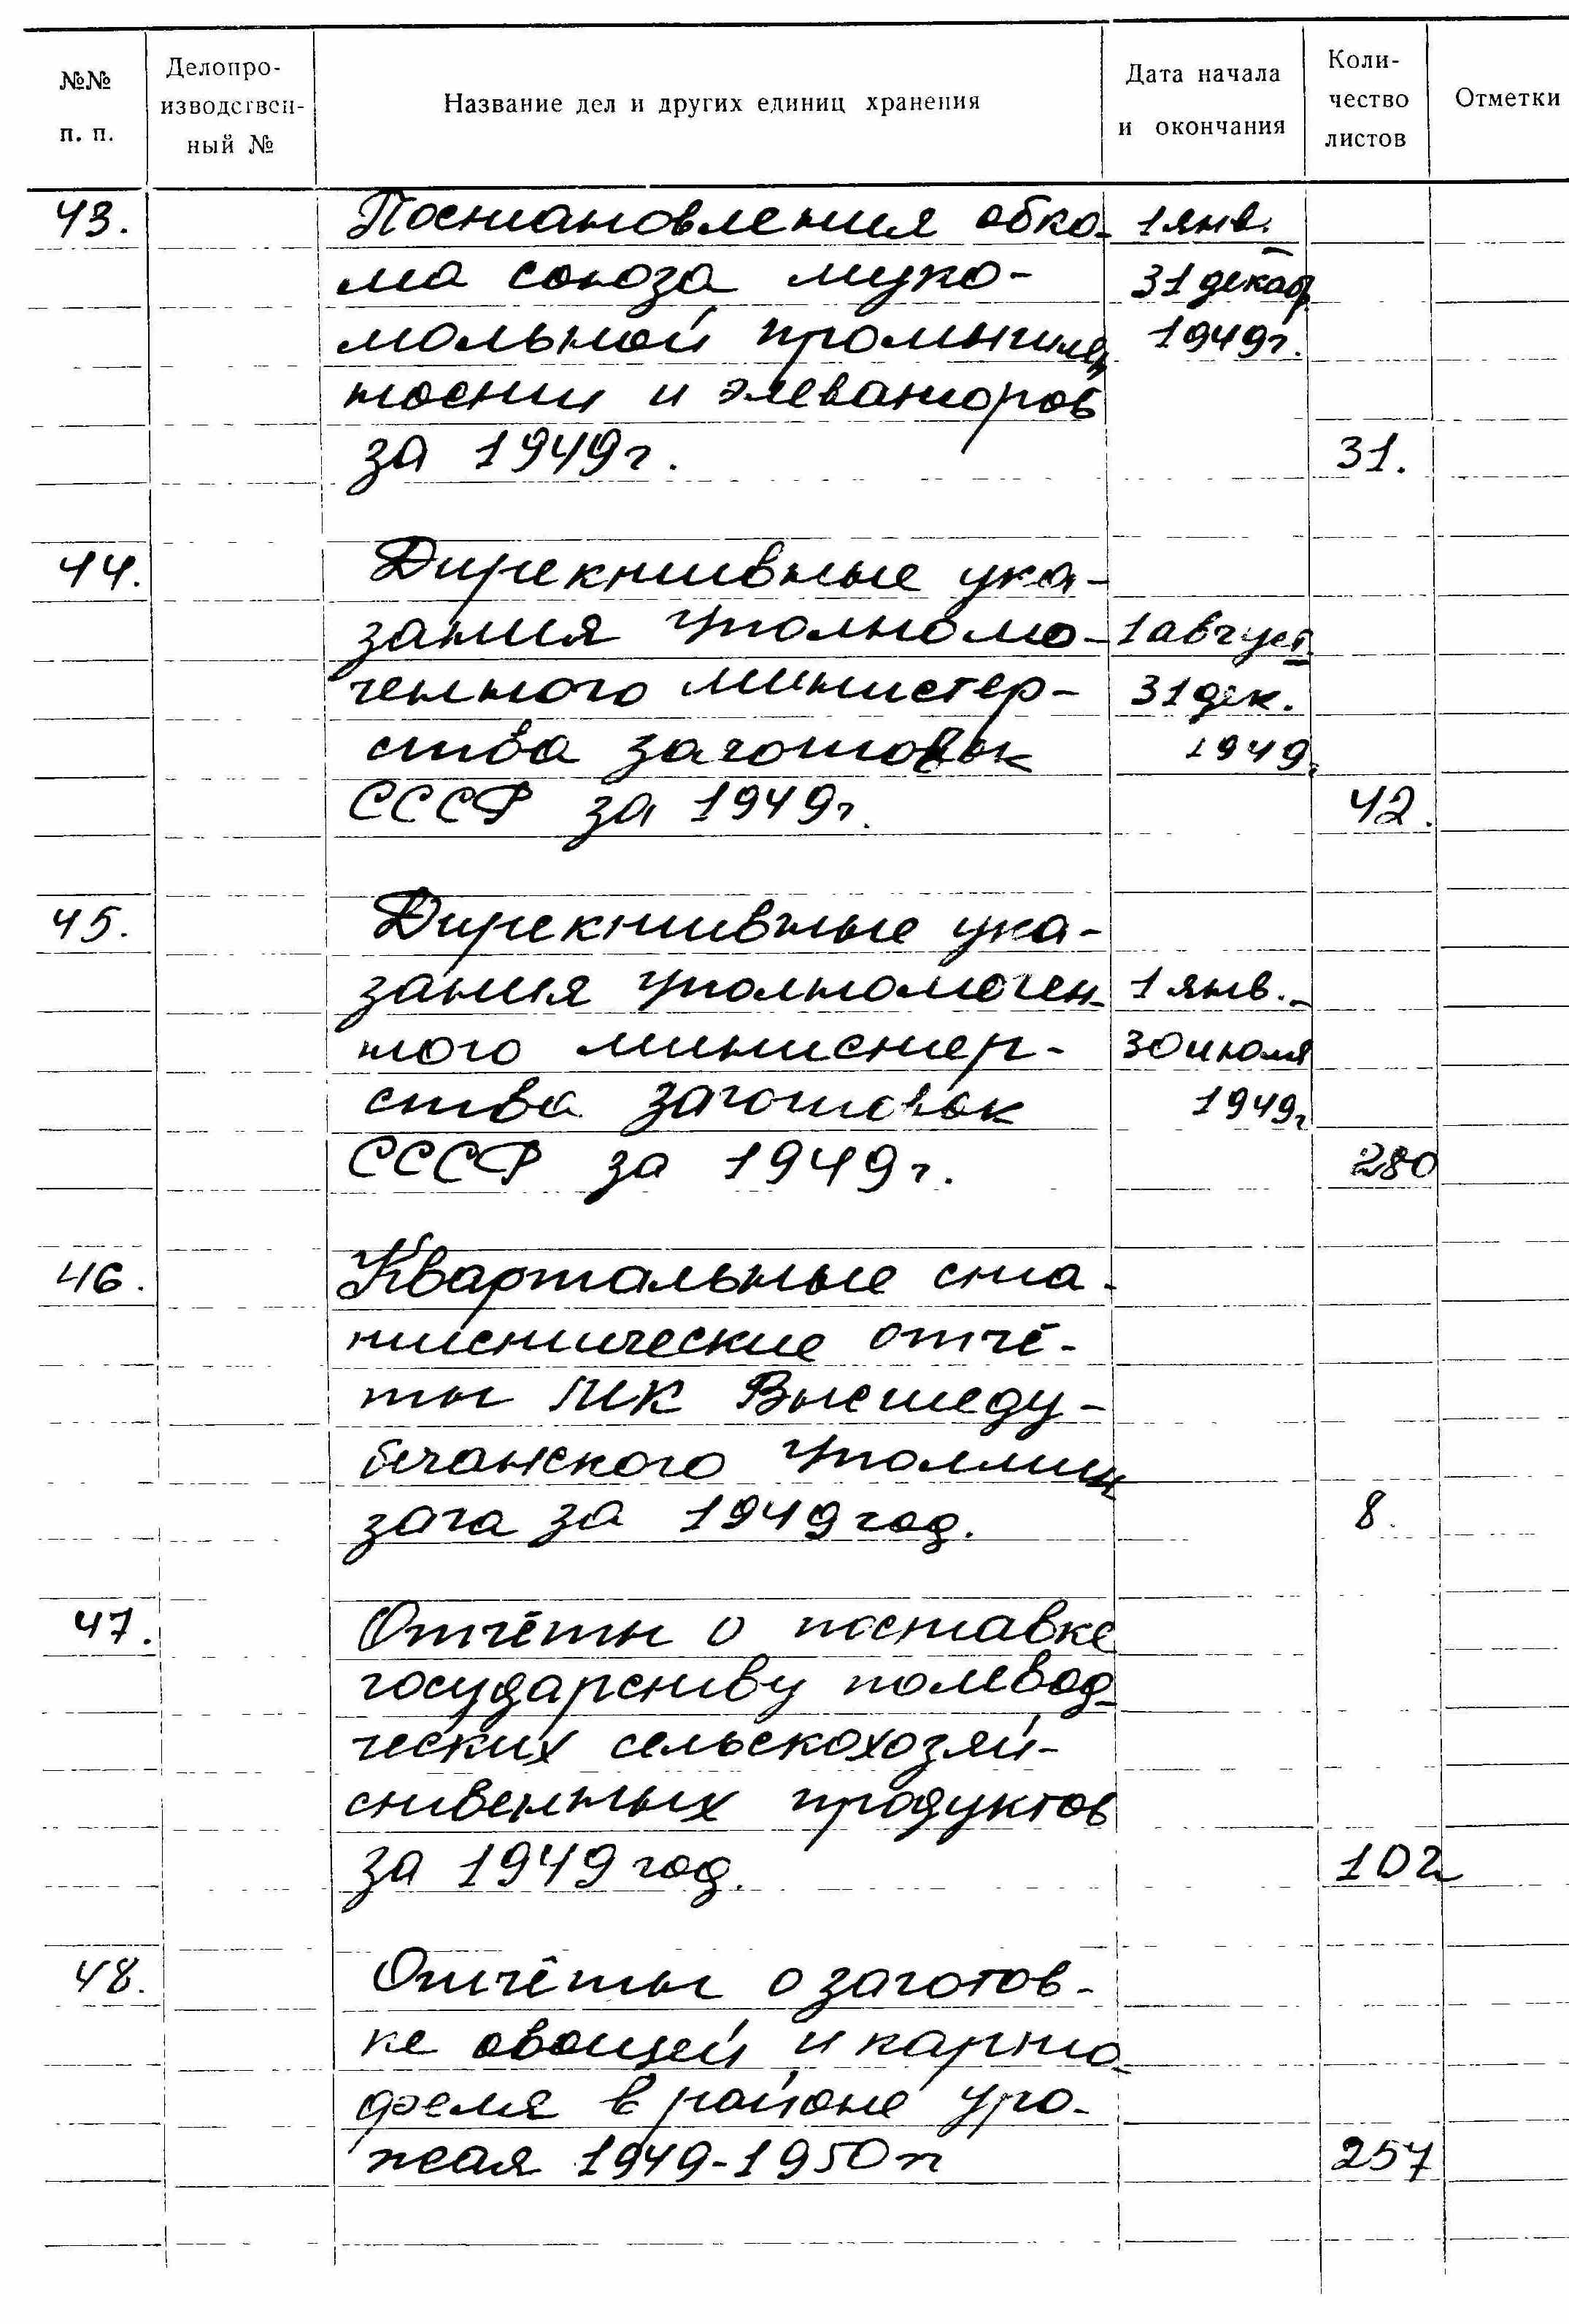 №№ п. п.
Делопро-
изводствен-
ный №
Название дел и других единиц хранения
Дата начала
и окончания
Коли-
чество
листов
Отметки
43. Постановления обко- 1 янв.
ма союза муко- 31 декаб.
мольной промышлен 1949г.
ности и элеваторов
за 1949г. 31.
44. Директивные ука-
зания Уполномо- 1 август
ченного министер- 31 дек.
ства заготовок 1949
СССР за 1949г. 42.
45. Директивные ука-
зания Уполномочен- 1 янв.-
ного министер- 30 июля
ства заготовок 1949г
СССР за 1949г. 280
46. Квартальные ста-
тистические отчё-
ты МК Высше
бечанского Уполмин
зага за 1949 год. 8.
47. Отчёты о поставке
государству полевод-
ческих сельскохозяй-
ственных продуктов
за 1949 год. 102
48. Отчёты о заготов-
ке овощей и карто-
феля в районе уро-
жая 1949-1950 гг 257